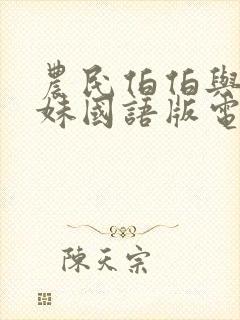 農民伯伯與
妹國語版電
陳天宗